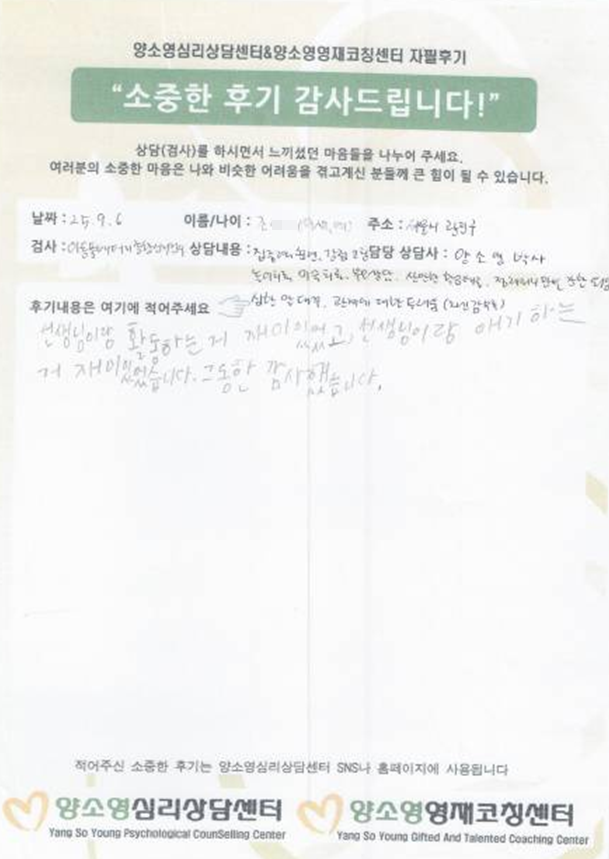 양소영심리상담센터&양소영영재코칭센터 자필후기
“소중한 후기 감사드립니다!”
상담(검사)를 하시면서 느끼셨던 마음들을 나누어 주세요.
여러분의 소중한 마음은 나와 비슷한 어려움을 겪고계신 분들께 큰 힘이 될 수 있습니다.
날짜 : 25. 9. 6 이름/나이 : 주소 : 서울시 광진구
검사 : 상담내용 : 담당 상담사 : 양소영 박사
놀이치료, 미술치료, 부모상담,
심한 말 대꾸, 관계에 대한 두려움
후기내용은 여기에 적어주세요
선생님이랑 활동하는 게 재미있었고, 선생님이랑 얘기 하는
게 재미있었습니다. 그동안 감사했습니다.
적어주신 소중한 후기는 양소영심리상담센터 SNS나 홈페이지에 사용됩니다
양소영심리상담센터 양소영영재코칭센터
Yang So Young Psychological CounSelling Center Yang So Young Gifted And Talented Coaching Center